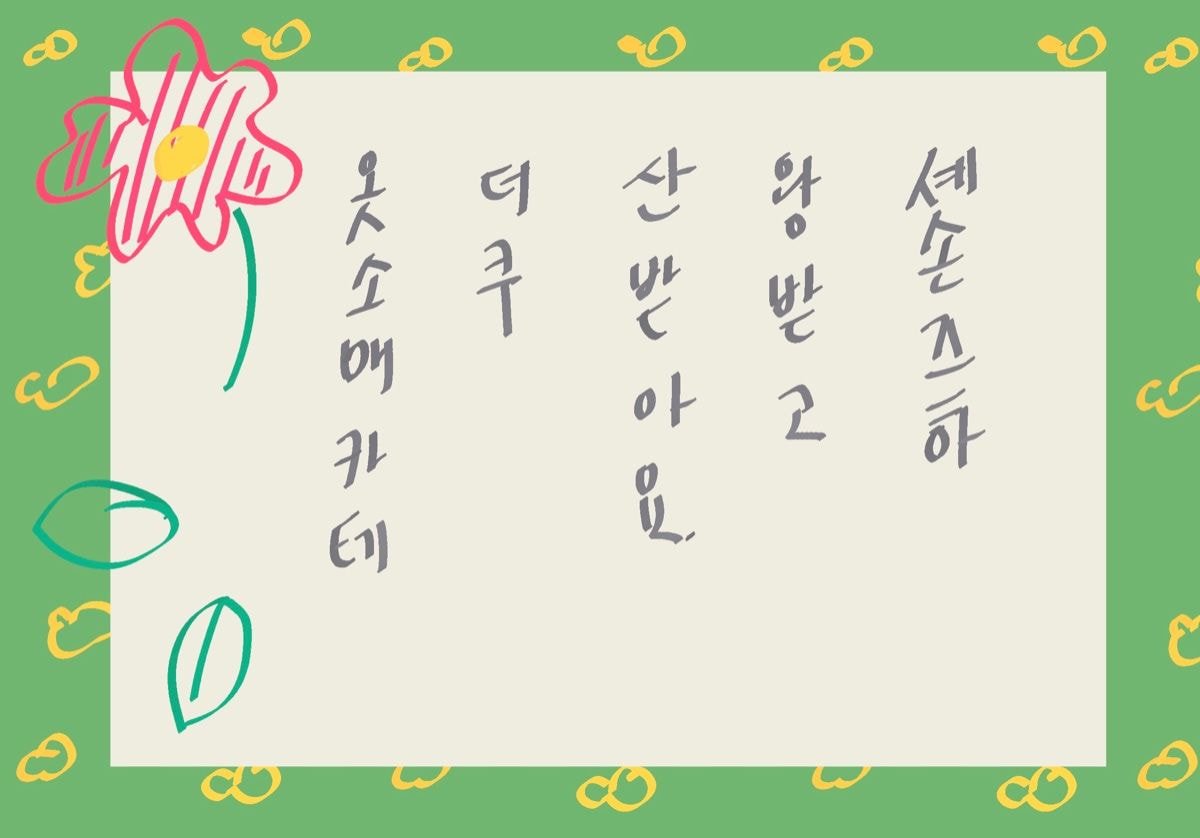 셰손즈하
왕받고
산받아요.
더쿠
옷소매카테